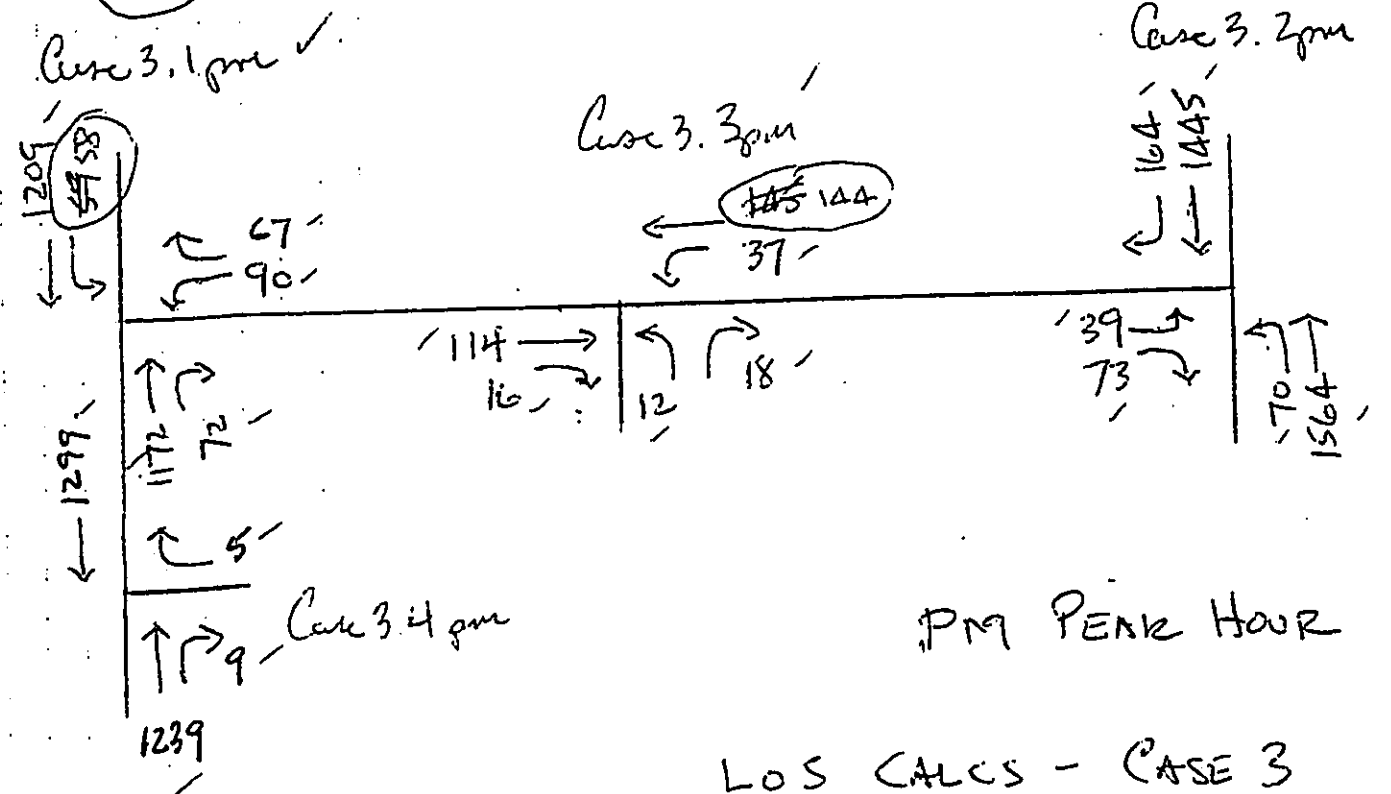 Case 3.1pm ✓
Case 3.2pm
Case 3.3pm
1209
58
164
1445
67
90
144
37
114
16
12
18
39
73
70
1564
1172
72
1299
5
Case 3.4 pm
9
1239
PM PEAK HOUR
LOS CALCS - CASE 3